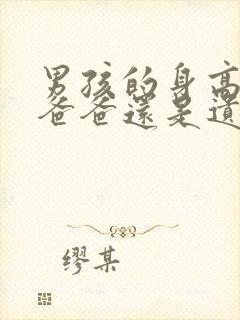 男孩的身高
爸爸还是遗
缪某